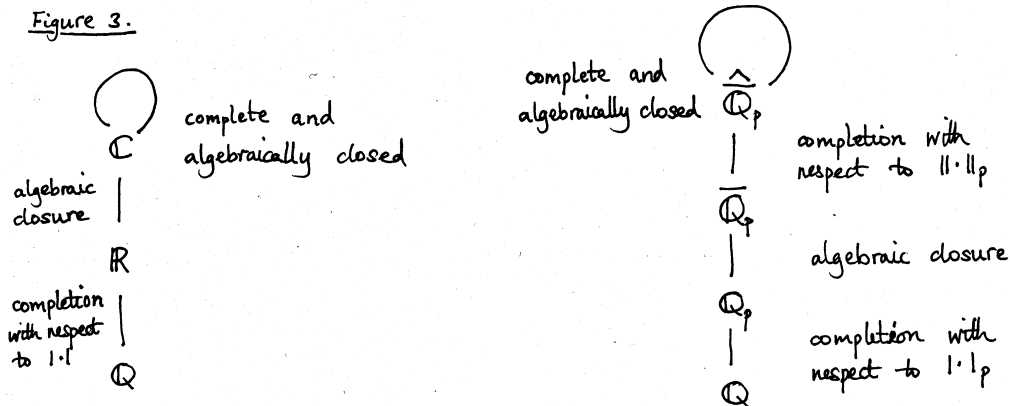 Figure 3.
complete and
algebraically closed
ℂ
algebraic
closure
ℝ
completion
with respect
to |·|
ℚ
complete and
algebraically closed
\hat{\overline{ℚ}}_p
completion with
respect to ||·||_p
\overline{ℚ}_p
algebraic closure
ℚ_p
completion with
respect to |·|_p
ℚ